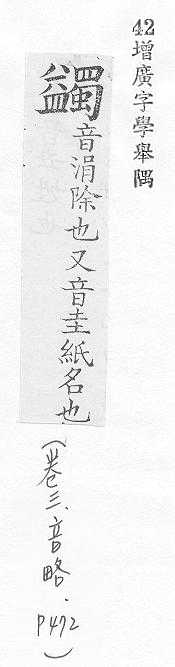 42增廣字學舉隅
蠲音涓除也又音圭紙名也
(卷三、音略. P472)